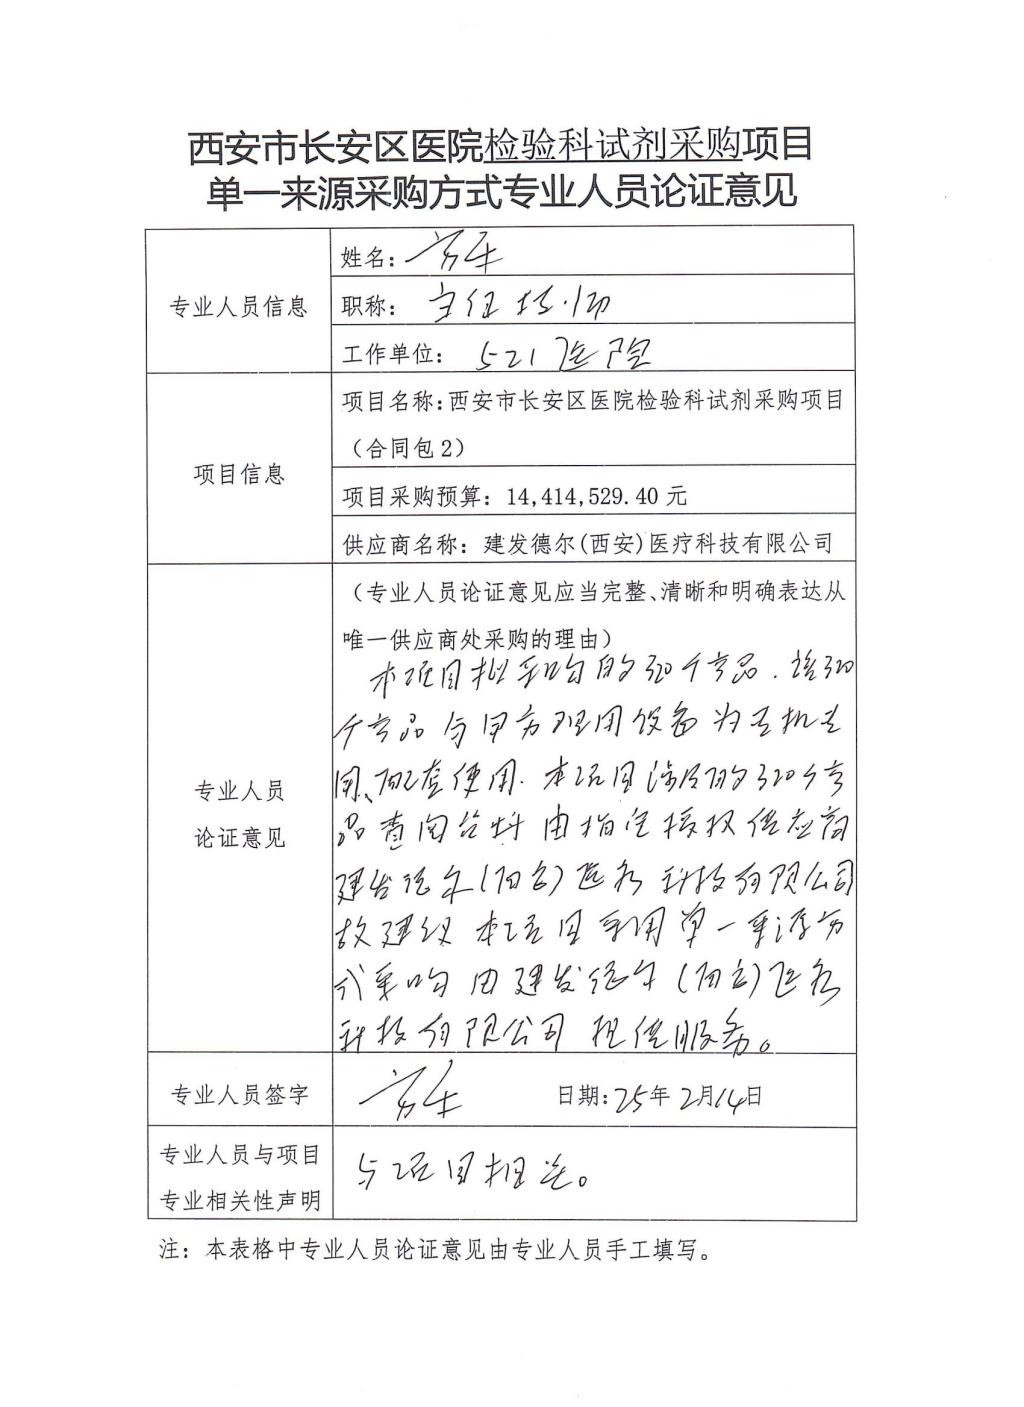 西安市长安区医院检验科试剂采购项目
单一来源采购方式专业人员论证意见
专业人员信息
姓名：
职称：主任技师
工作单位：521医院
项目信息
项目名称:西安市长安区医院检验科试剂采购项目
（合同包2）
项目采购预算：14,414,529.40 元
供应商名称：建发德尔(西安)医疗科技有限公司
专业人员
论证意见
（专业人员论证意见应当完整、清晰和明确表达从
唯一供应商处采购的理由）
本项目拟采购的320个产品.该320
个产品与甲方现用设备为专机专
用、配套使用.本项目涉及的320个产
品查阅资料由指定授权供应商
建发德尔(西安)医疗科技有限公司
故建议本项目采用单一来源方
式采购由建发德尔(西安)医疗
科技有限公司提供服务。
专业人员签字
日期:25年2月14日
专业人员与项目
专业相关性声明
与项目相关。
注：本表格中专业人员论证意见由专业人员手工填写。